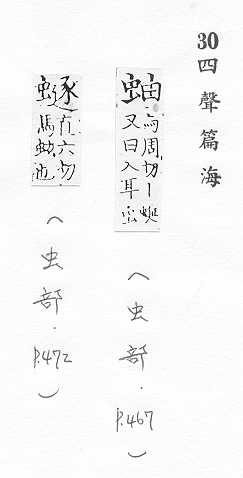 30四聲篇海
蚰以周切丨蜒
又曰入耳虫
(虫部.P.467)
蝳直六切
馬蚿也
(虫部.P.472)